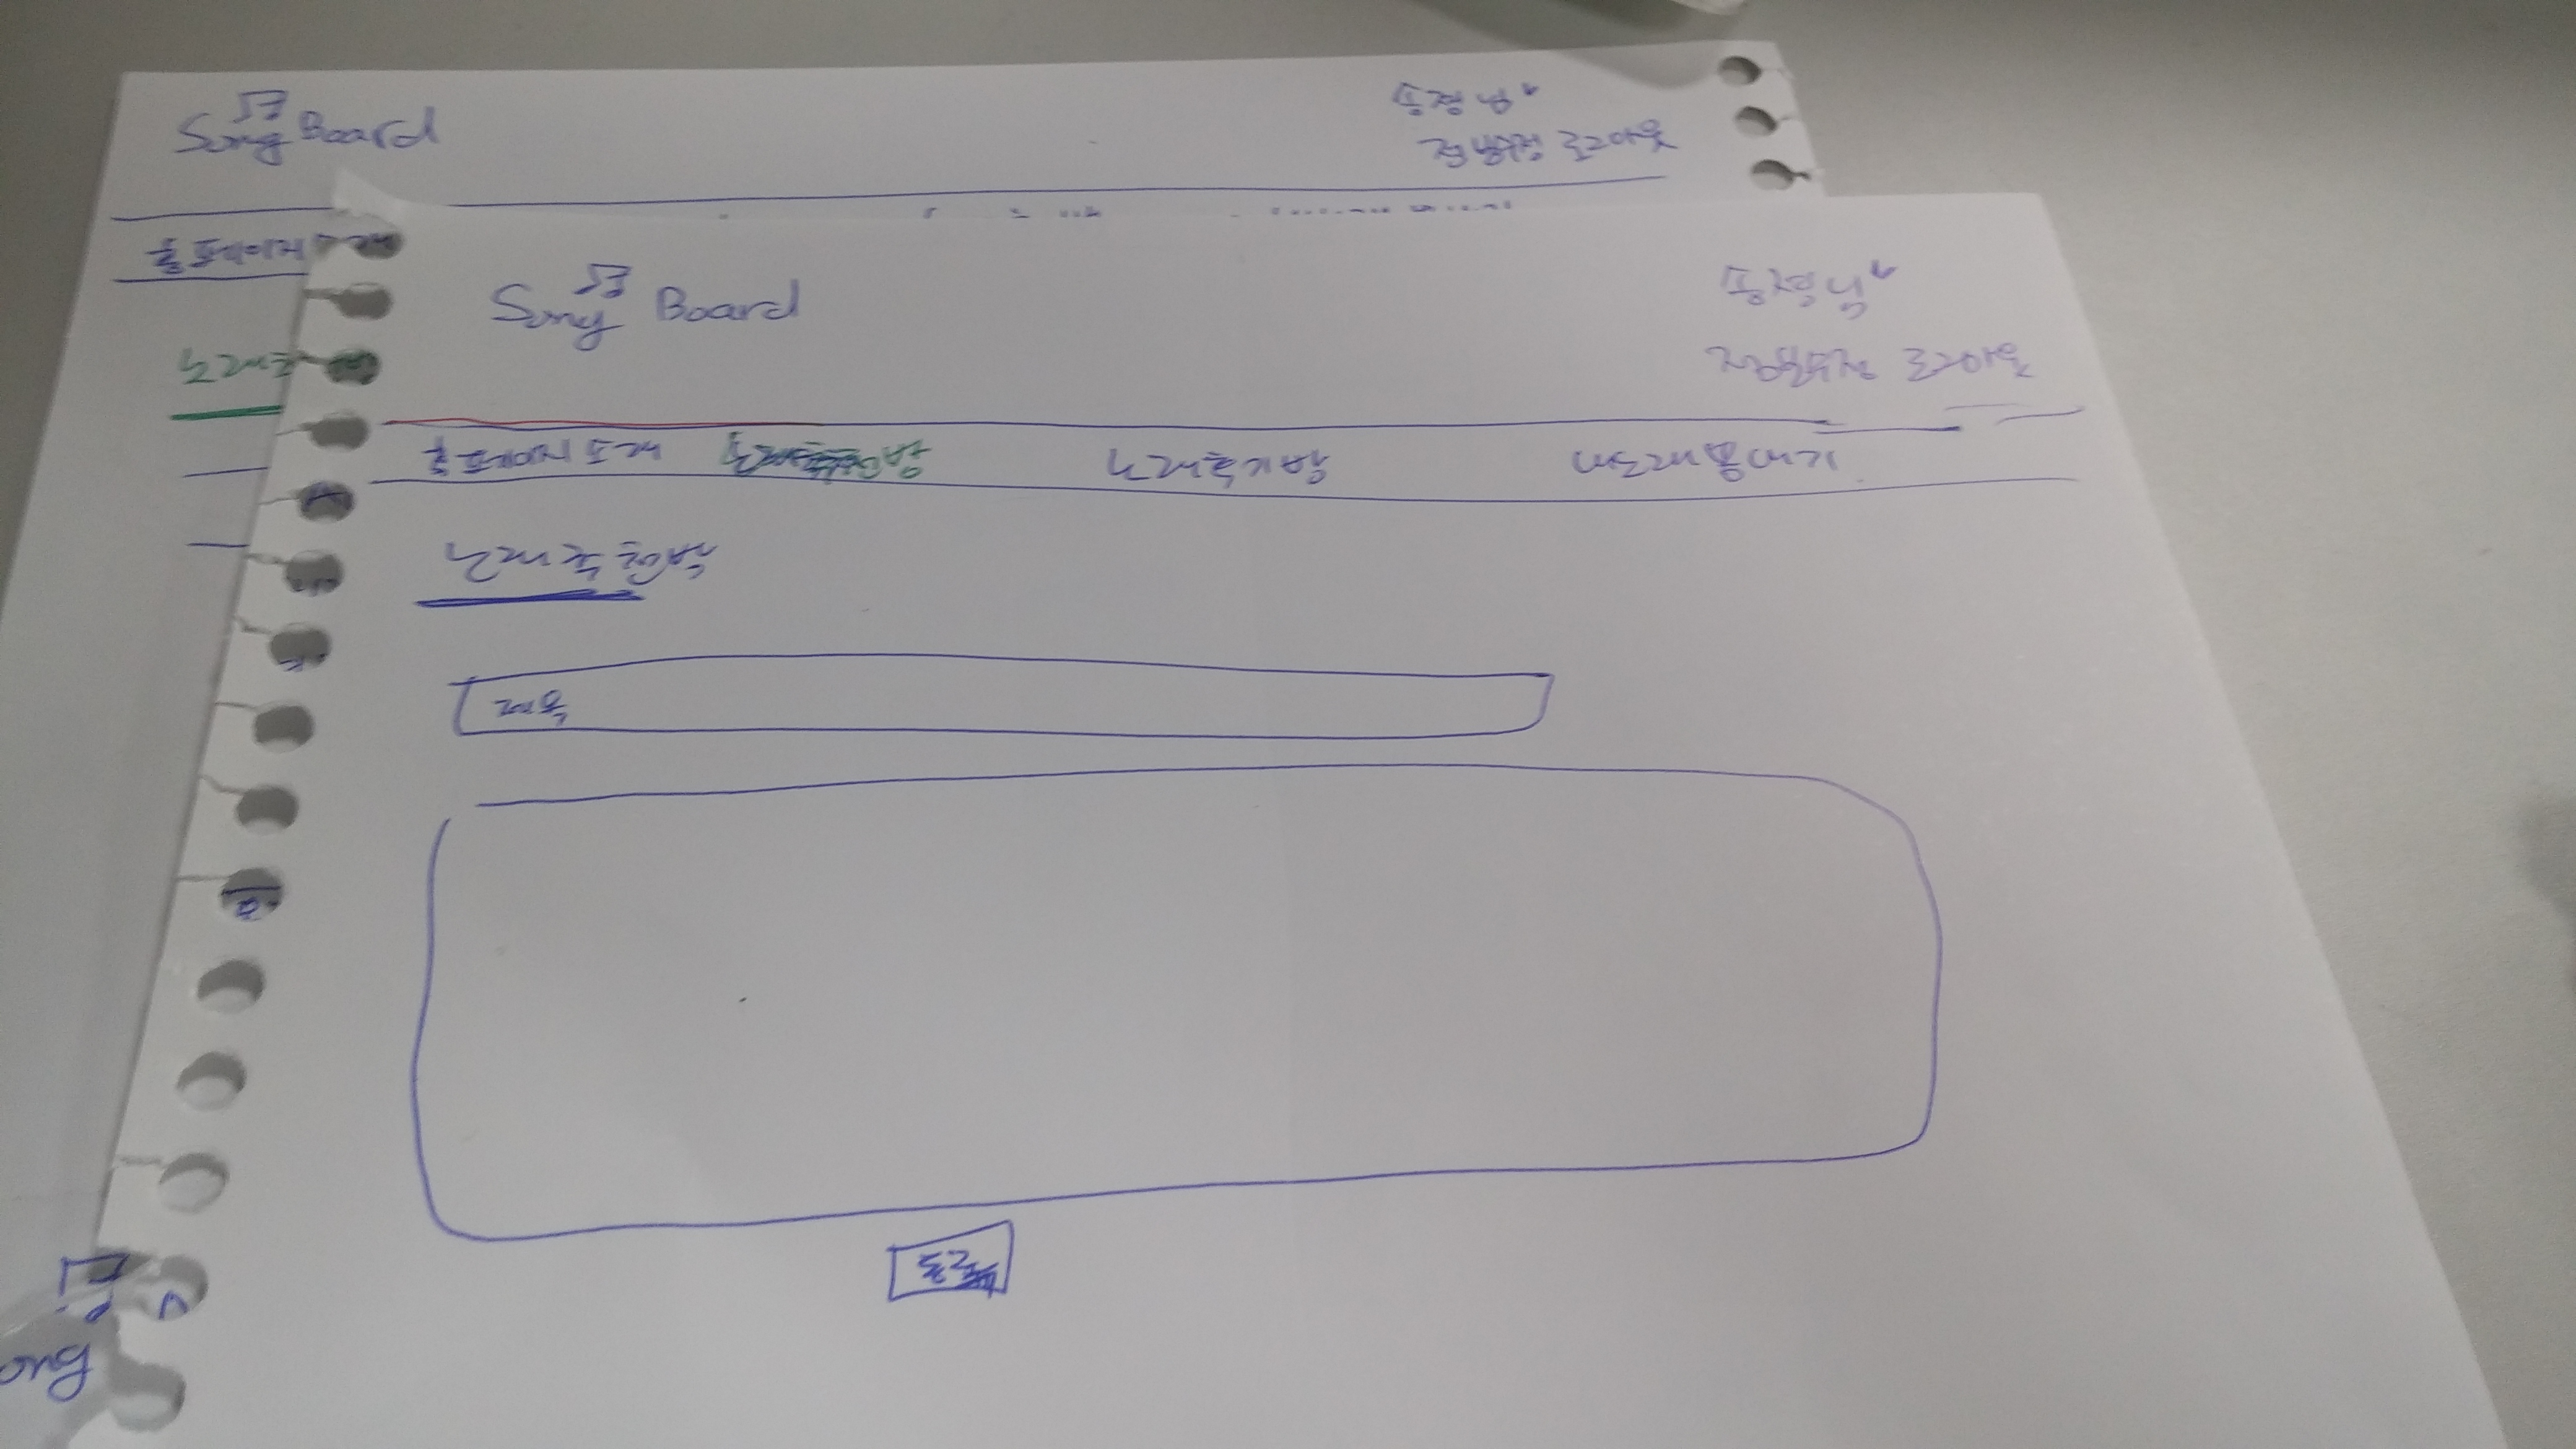 Song Board
정보수정 로그아웃
홈페이지
노래추
Song Board
정보수정 로그아웃
홈페이지소개 노래추천방 노래듣기방 내노래뽐내기
노래추천방
제목
등록
ong